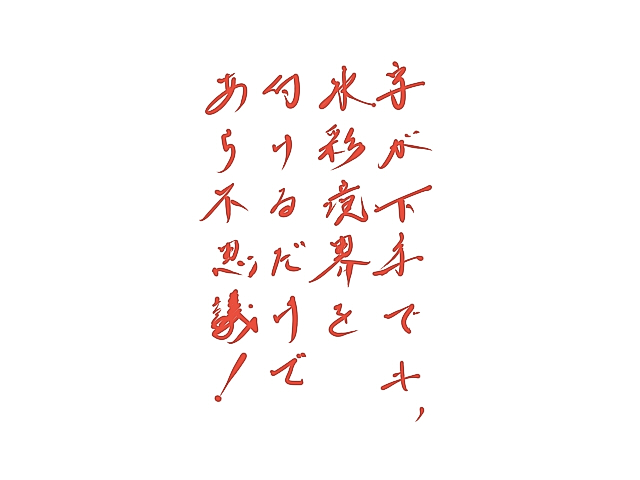 字が下手でも,
水彩境界を
付けるだけで
あら不思議!